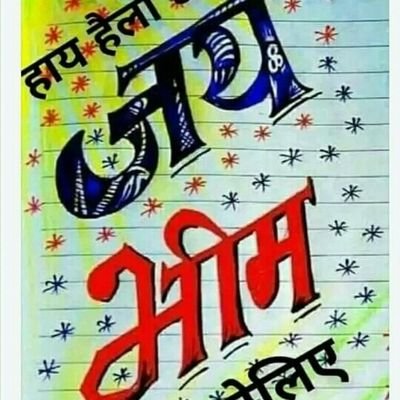 हाय हैलो
जय
भीम